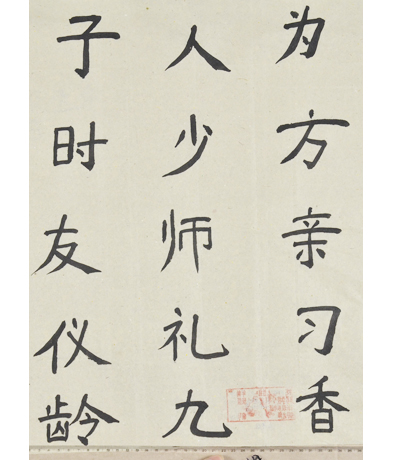 为人子
方少时
亲师友
习礼仪
香九龄